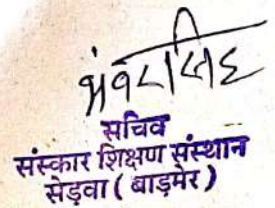 भंवरसिंह
सचिव
संस्कार शिक्षण संस्थान
सेड़वा ( बाड़मेर )